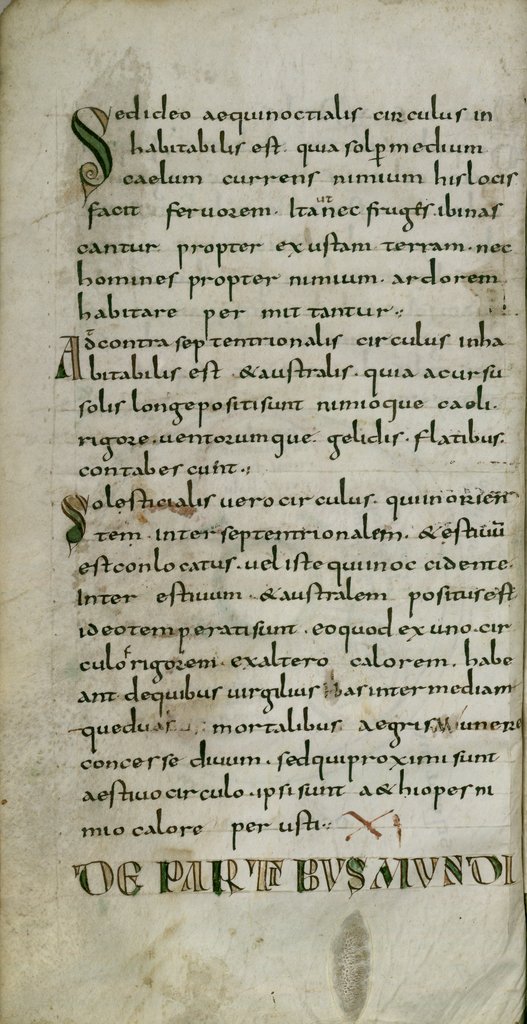 Sed ideo aequinoctialis circulus in
habitabilis est. quia sol per medium
caelum currens nimium his locis
facit feruorem. Ita ut nec fruges ibi nas
cantur propter exustam terram. nec
homines propter nimium. ardorem
habitare per mit tantur.:
Ad contra septentrionalis circulus inha
bitabilis est & australis. quia a cursu
solis longe positi sunt nimioque caeli.
rigore. uentorumque. gelidis. flatibus.
contabescunt.;
Solesticialis uero circulus. qui in orien
tem. inter septemtrionalem. & estiuum
est conlocatus. uel iste qui in occidente.
Inter estiuum. & australem positus est
ideo temperati sunt. eo quod ex uno. cir
culo rigorem. ex altero calorem. habe
ant. de quibus uirgilius has inter mediam
que duas mortalibus aegris munere
concesse diuum. sed qui proximi sunt
aestiuo circulo. ipsi sunt aethiopes ni
mio calore per usti.: XI
DE PARTIBUS MUNDI